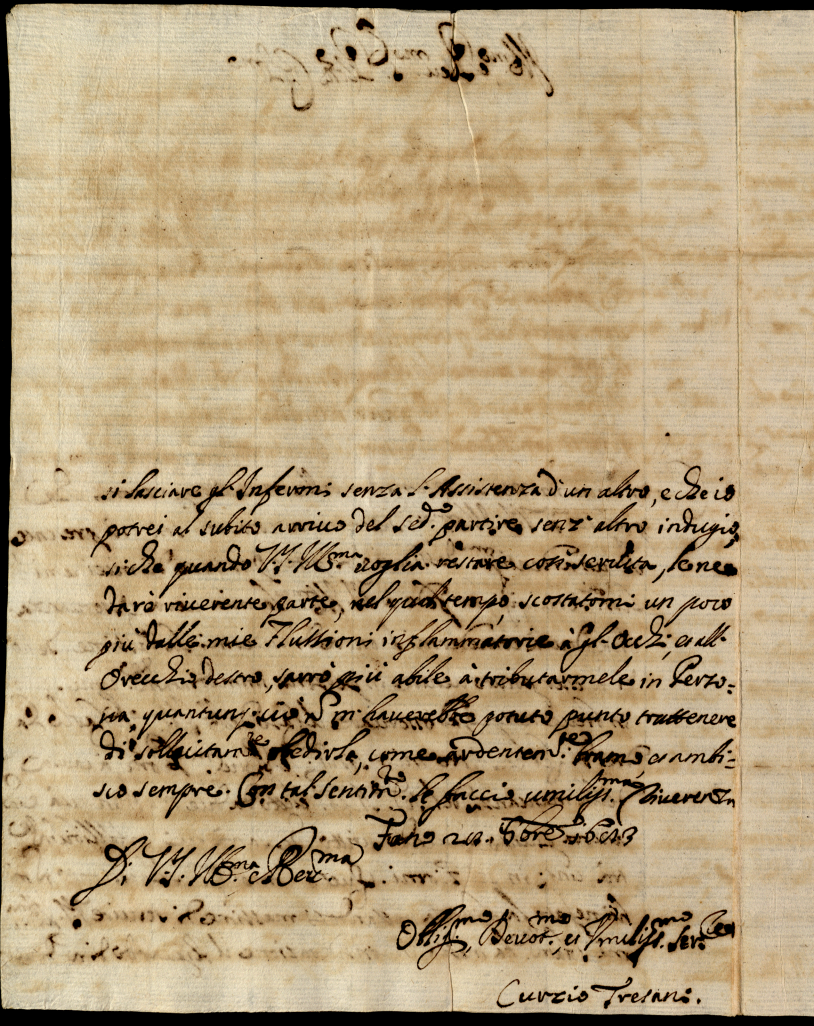 si lasciare gl'Infermi senza l'Assistenza d'un altro, e che io
potrei al subito arrivo del sed.º partire senz'altro indugio,
siche quando V.S. Ill.ma voglia restare così servita, le ne
darò riverente parte, nel qual tempo scostatomi un poco
più dalle mie Flussioni inflammatorie à gl'Occhi, et all'
Orecchio destro, sarrò più abile à tributarmele in Perso-
na, quantunq. ciò nō m'haverebbe potuto punto trattenere
di sollicitam.te obedirla, come ardentem.te bramo, et ambi-
sco sempre. Con tal sentim.to le faccio umiliss.ma Riverenza
Fano 28. 9bre
Di V.S. Ill.ma e Rev.ma
Oblig.mo, Devot.mo, et Umiliss.mo Ser.re
Curzio Tresani.